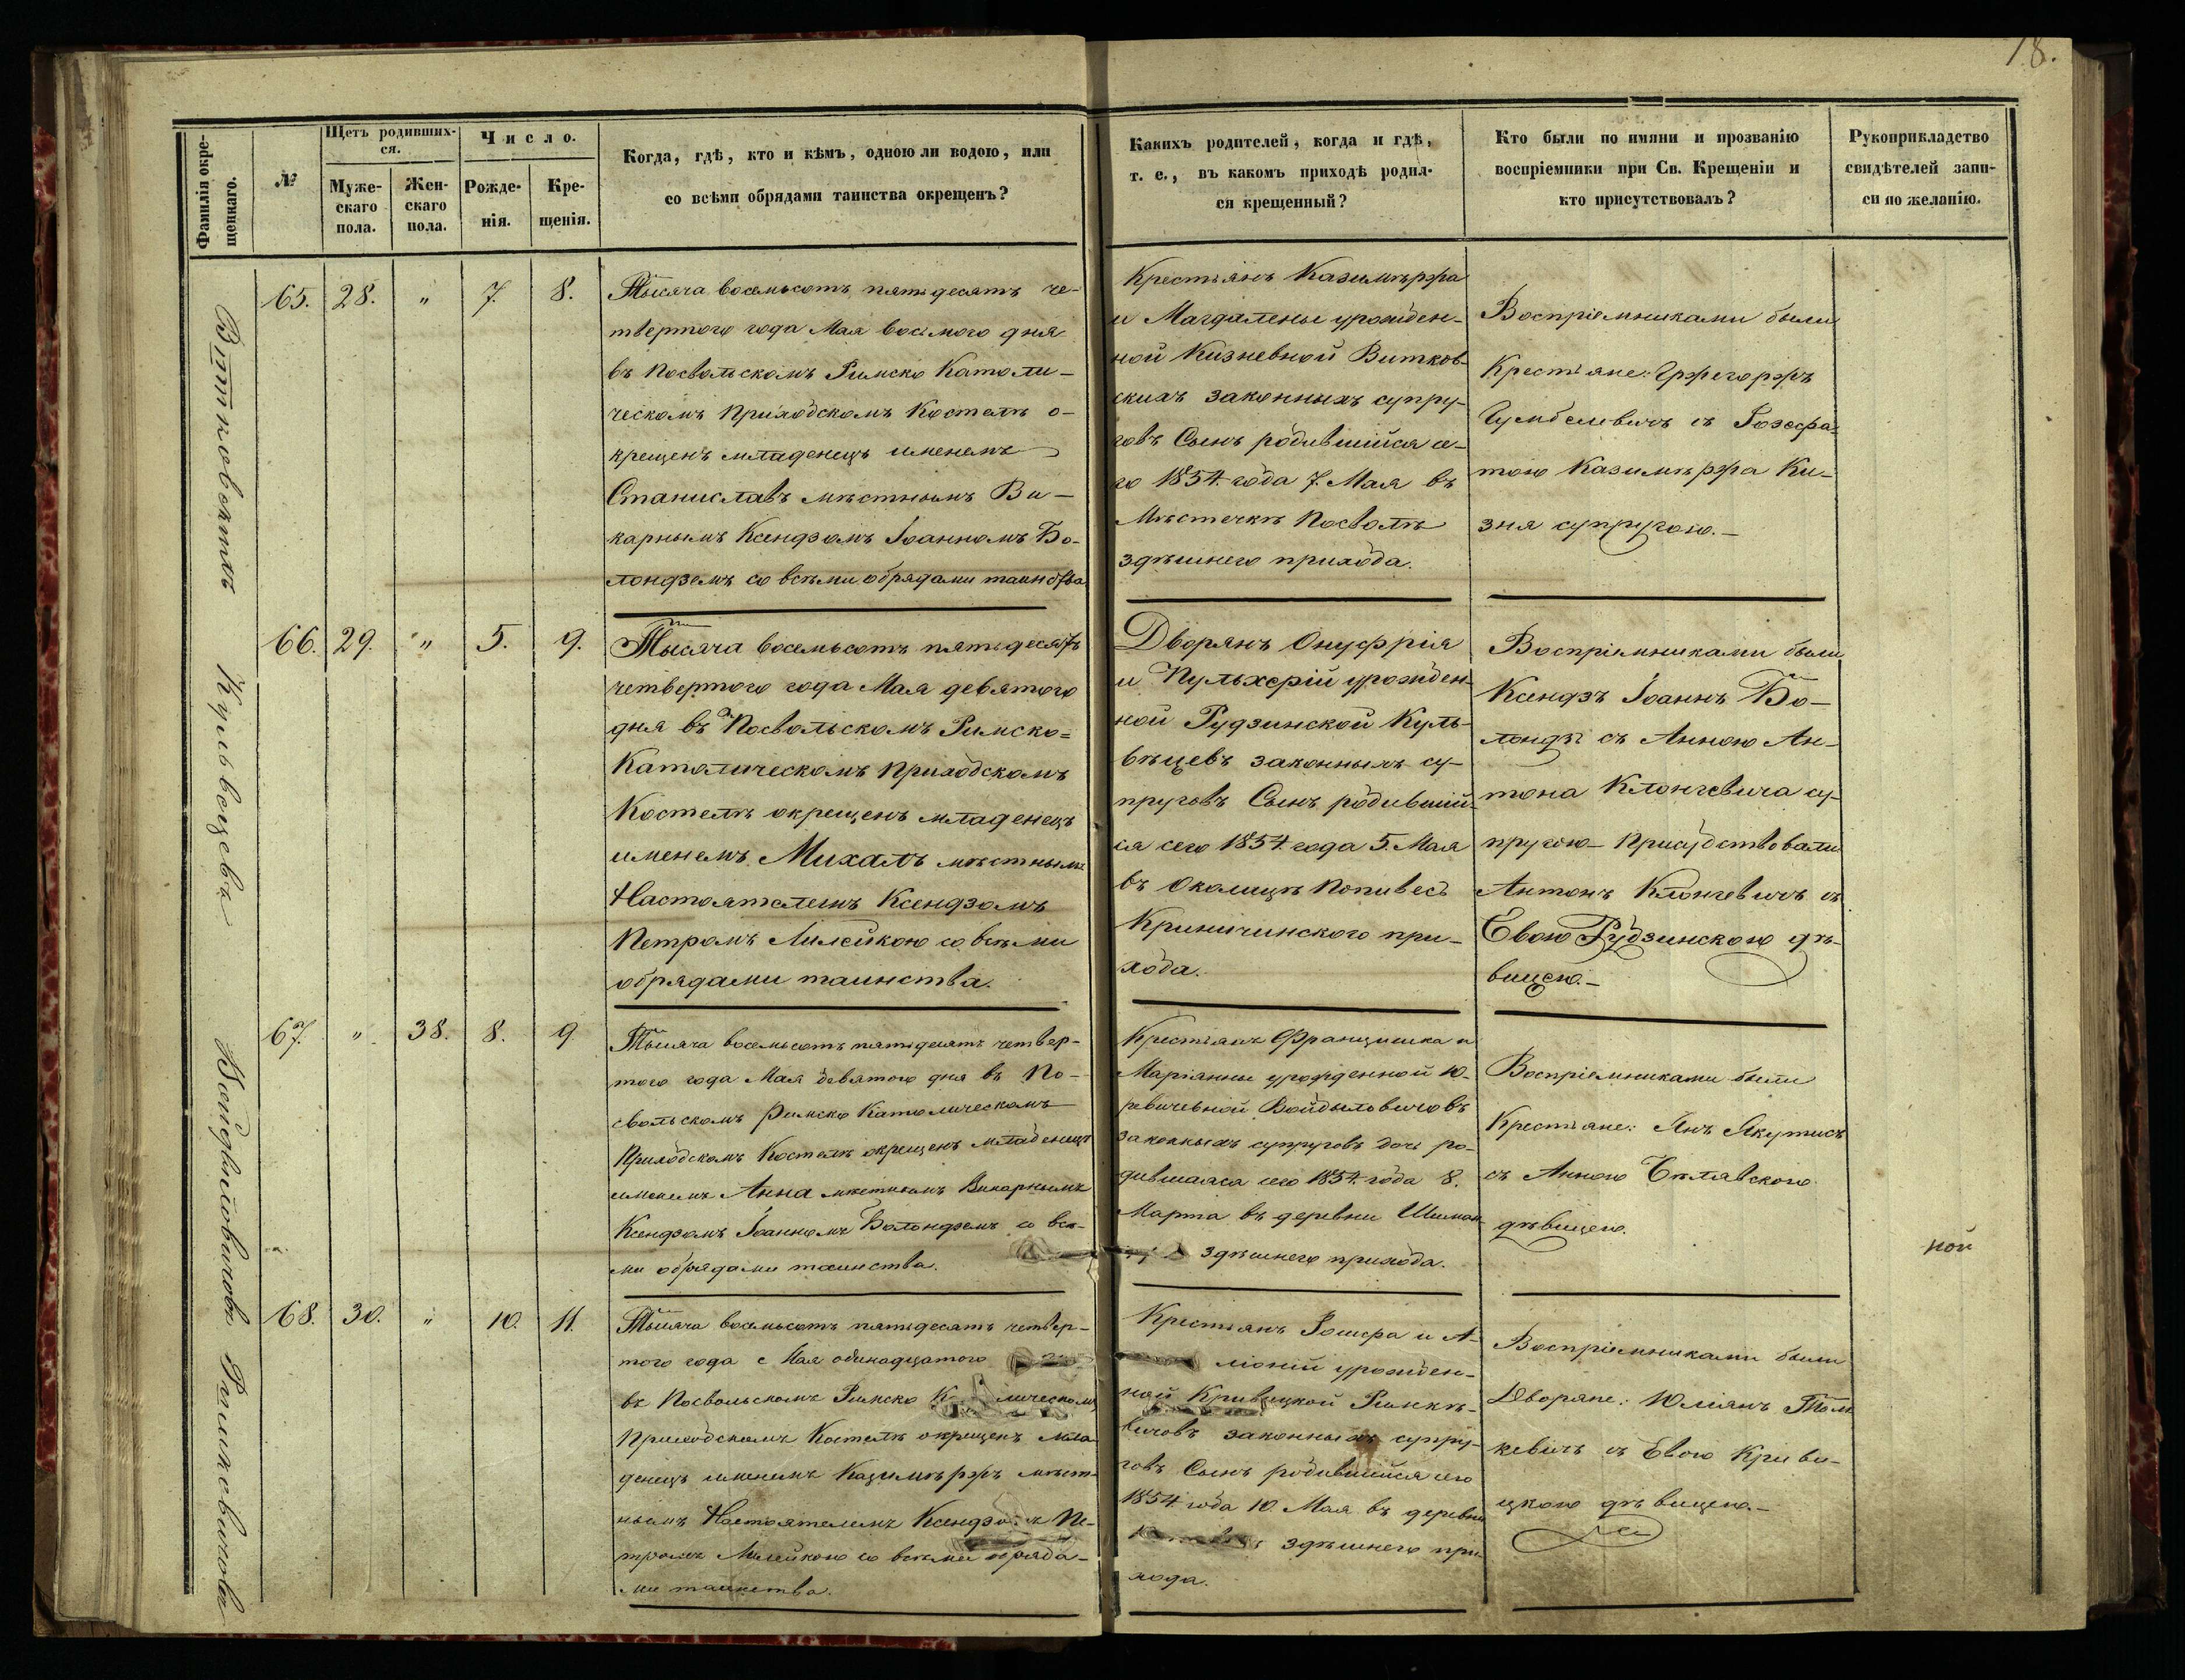 18.
Фамилія окре-
щеннаго.
№
Щетъ родивших-
ся.
Муже-
скаго
пола.
Жен-
скаго
пола.
Число.
Рожде-
нія.
Кре-
щенія.
Когда, гдѣ, кто и кѣмъ, одною ли водою, или
со всѣми обрядами таинства окрещенъ?
Какихъ родителей, когда и гдѣ,
т. е., въ какомъ приходѣ родил-
ся крещенный?
Кто были по имяни и прозванію
воспріемники при Св. Крещеніи и
кто присутствовалъ?
Рукоприкладство
свидѣтелей запи-
си по желанію.
Витковскихъ
65. 28. " 7. 8.
Тысяча восемьсотъ пятьдесятъ че-
твертого года Мая восьмого дня
въ Посвольскомъ Римско Католи-
ческомъ Приходскомъ Костелѣ о-
крещенъ младенецъ именемъ
Станиславъ мѣстнымъ Ви-
карнымъ Ксендзомъ Іоанномъ Бо-
лондземъ со всѣми обрядами таинства
Крестьянъ Казимѣржа
и Магдалены урожден-
ной Кизневной Витков-
скихъ законныхъ супру-
говъ Сынъ родившійся се-
го 1854 года 7. Мая въ
Мѣстечкѣ Посволѣ
здѣшнего прихода.
Воспріемниками были
Крестьяне: Гржегоржъ
Гумбелевичъ съ Іозефа-
тою Казимѣржа Ки-
зня супругою.-
Кульвецевъ
66. 29. " 5. 9.
Тысяча восемьсотъ пятьдесятъ
четвертого года Мая девятого
дня въ Посвольскомъ Римско=
Католическомъ Приходскомъ
Костелѣ окрещенъ младенецъ
именемъ Михалъ мѣстнымъ
Настоятелемъ Ксендзомъ
Петромъ Милейкою со всѣми
обрядами таинства.
Дворянъ Онуфрія
и Пульхеріи урожден-
ной Рудзинской Куль-
вѣцевъ законныхъ су-
пруговъ Сынъ родивший-
ся сего 1854 года 5. Мая
въ Околицѣ Попивесь
Криничинского при-
хода.
Воспріемниками были
Ксендзъ Іоаннъ Бо-
лондзь съ Анною Ан-
тона Клонгевича су-
пругою- Присудствовали
Антонъ Клонгевичъ съ
Евою Рудзинскою дѣ-
вицею.-
Войдыловичовъ
67. " 38. 8. 9.
Тысяча восемьсотъ пятьдесятъ четвер-
того года Мая девятого дня въ По-
свольскомъ Римско Католическомъ
Приходскомъ Костелѣ окрещенъ младенецъ
именемъ Анна мѣстнымъ Викарнымъ
Ксендзомъ Іоанномъ Болондземъ со всѣ-
ми обрядами таинства.
Крестьянъ Францишка и
Маріанны урожденной Ю-
ревичевной Войдыловичовъ
законныхъ супруговъ дочь ро-
дившаяся сего 1854 года 8.
Марта въ деревни
здѣшнего прихода.
Воспріемниками были
Крестьяне: Янъ Якутисъ
съ Анною Бѣлявского
дѣвицею.
ной
Римкевичовъ
68. 30. " 10. 11.
Тысяча восемьсотъ пятьдесятъ четвер-
того года с Мая одинадцатого
въ Посвольскомъ Римско К лическомъ
Приходскомъ Костелѣ окрещенъ мла-
денецъ именемъ Казимѣржъ мѣст-
нымъ Настоятелемъ Ксендзомъ Пе-
тромъ Милейкою со всѣми обряда-
ми таинства.
Крестьянъ Іошефа и А-
лоніи урожден-
ной Кривицкой Римкѣ-
вичовъ законныхъ супру-
говъ Сынъ родившийся сего
1854 года 10. Мая въ деревни
здѣшнего при-
хода.
Воспріемниками были
Дворяне: Юліянъ Том-
кевичъ съ Евою Криви-
цкою дѣвицею.-